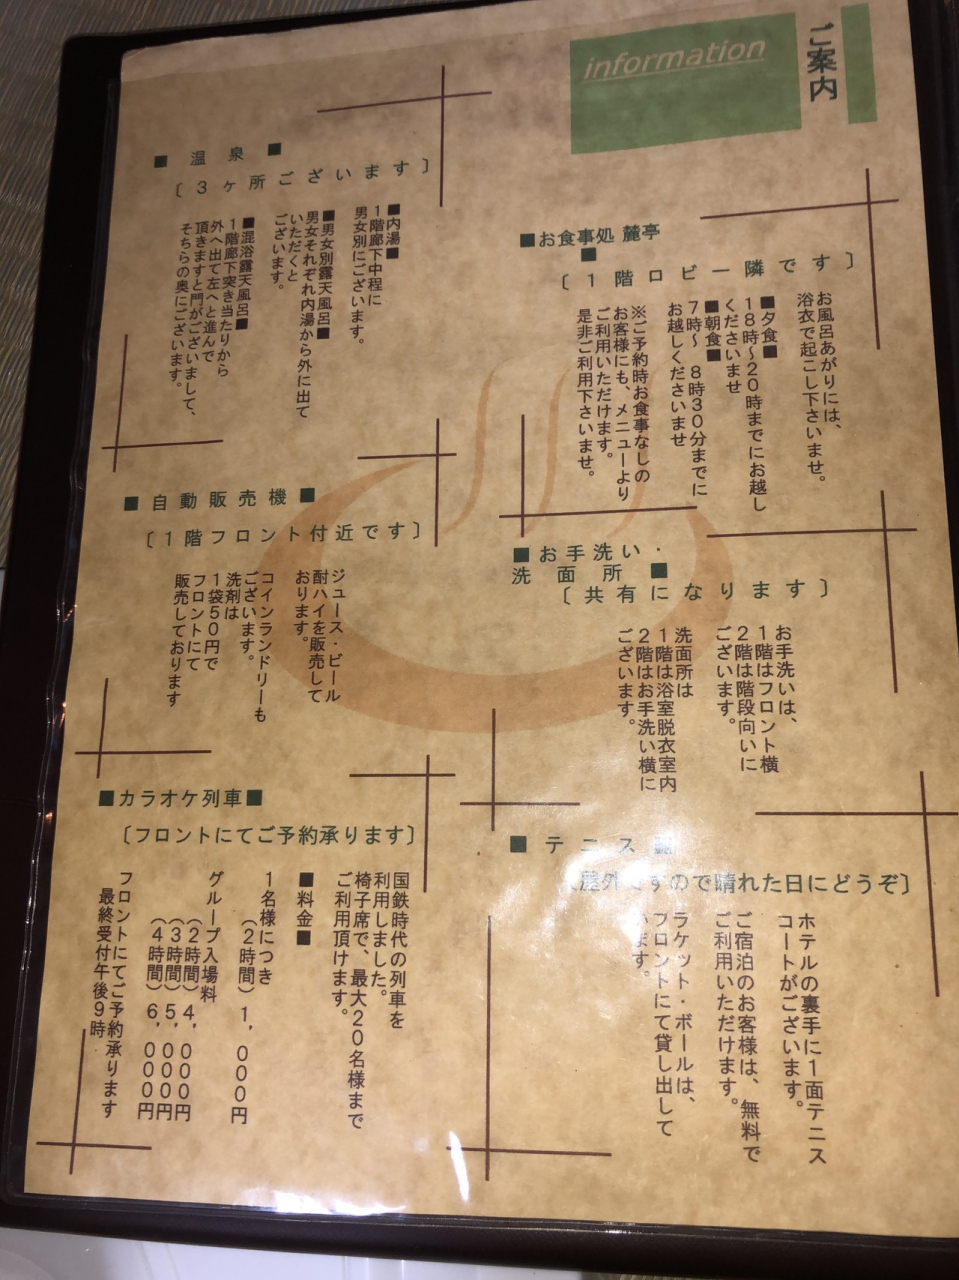 ご案内
information
■お食事処 麓亭
■
〔１階ロビー隣です〕
お風呂あがりには、
浴衣で起こし下さいませ。
■夕食■
１８時～２０時までにお越し
くださいませ
■朝食■
７時～ ８時３０分までに
お越しくださいませ
※ご予約時お食事なしの
お客様にも、メニューより
ご利用いただけます。
是非ご利用下さいませ。
■お手洗い・
洗面所■
〔共有になります〕
お手洗いは、
１階はフロント横
２階は階段向いに
ございます。
洗面所は
１階は浴室脱衣室内
２階はお手洗い横に
ございます。
■テニス■
屋外ですので晴れた日にどうぞ〕
ホテルの裏手に１面テニス
コートがございます。
ご宿泊のお客様は、無料で
ご利用いただけます。
ラケット・ボールは、
フロントにて貸し出して
います。
■温泉■
〔３ヶ所ございます〕
■内湯■
１階廊下中程に
男女別にございます。
■男女別露天風呂■
男女それぞれ内湯から外に出て
いただくと
ございます。
■混浴露天風呂■
１階廊下突き当たりから
外へ出て左へと進んで
頂きますと門がございまして、
そちらの奥にございます。
■自動販売機■
〔１階フロント付近です〕
ジュース・ビール
酎ハイを販売して
おります。
コインランドリーも
ございます。
洗剤は
１袋５０円で
フロントにて
販売しております
■カラオケ列車■
〔フロントにてご予約承ります〕
国鉄時代の列車を
利用しました。
椅子席で、最大２０名様まで
ご利用頂けます。
■料金■
１名様につき
（２時間）１，０００円
グループ入場料
（２時間）４，０００円
（３時間）５，０００円
（４時間）６，０００円
フロントにてご予約承ります
最終受付午後９時